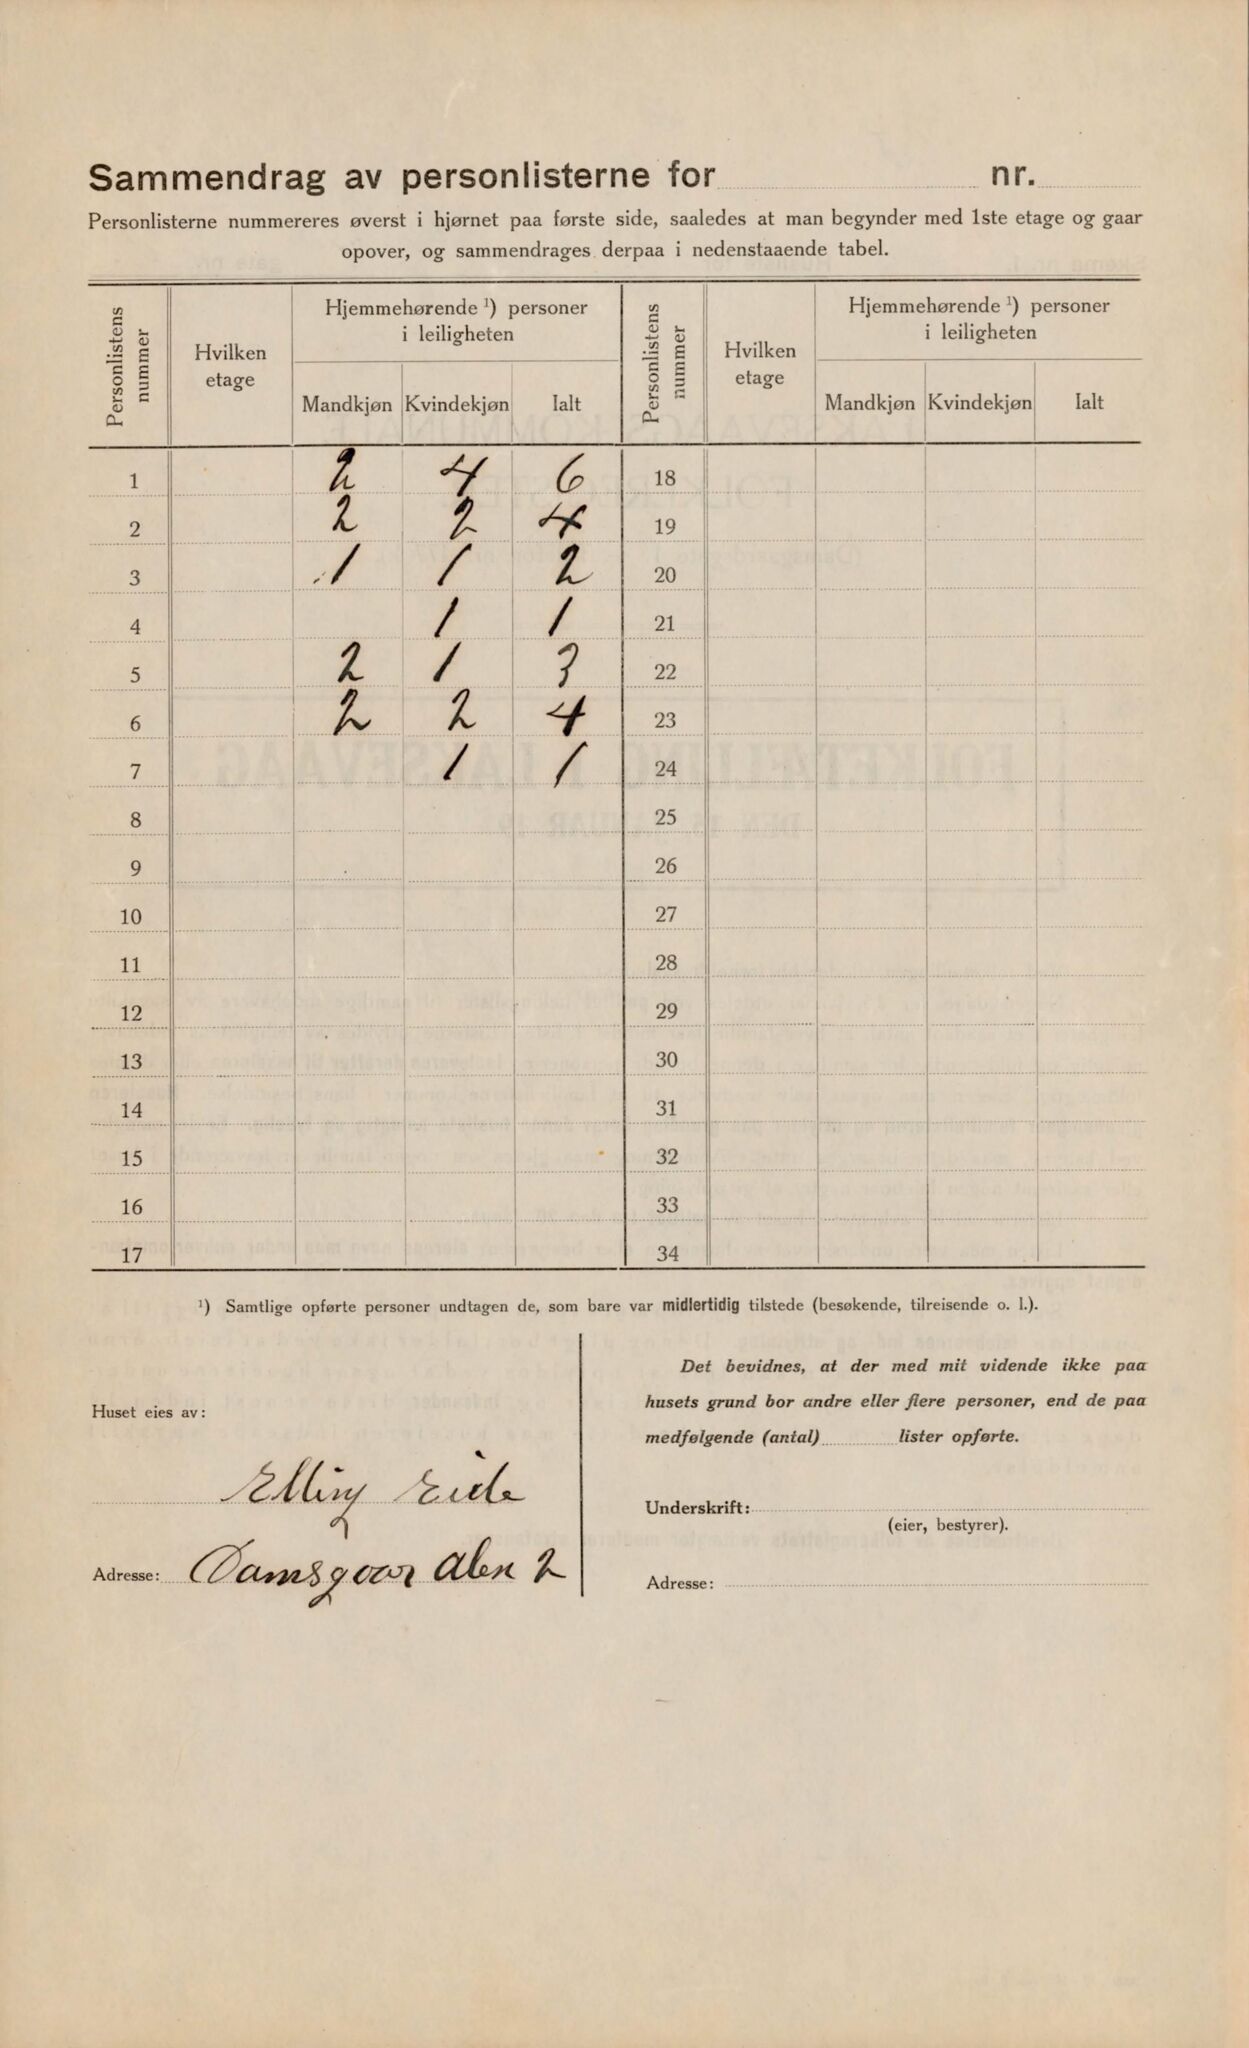 Sammendrag av personlisterne for nr.
Personlisterne nummereres øverst i hjørnet paa første side, saaledes at man begynder med 1ste etage og gaar
opover, og sammendrages derpaa i nedenstaaende tabel.
Personlistens nummer Hvilken etage Hjemmehørende ¹) personer i leiligheten Personlistens nummer Hvilken etage Hjemmehørende ¹) personer i leiligheten
Mandkjøn Kvindekjøn Ialt Mandkjøn Kvindekjøn Ialt
1 2 4 6 18
2 2 2 4 19
3 1 1 2 20
4 1 1 21
5 2 1 3 22
6 2 2 4 23
7 1 1 24
8 25
9 26
10 27
11 28
12 29
13 30
14 31
15 32
16 33
17 34
¹) Samtlige opførte personer undtagen de, som bare var midlertidig tilstede (besøkende, tilreisende o. l.).
Huset eies av:
Elling Eide
Adresse: Damsgaar alen 2
Det bevidnes, at der med mit vidende ikke paa
husets grund bor andre eller flere personer, end de paa
medfølgende (antal) lister opførte.
Underskrift:
(eier, bestyrer).
Adresse: